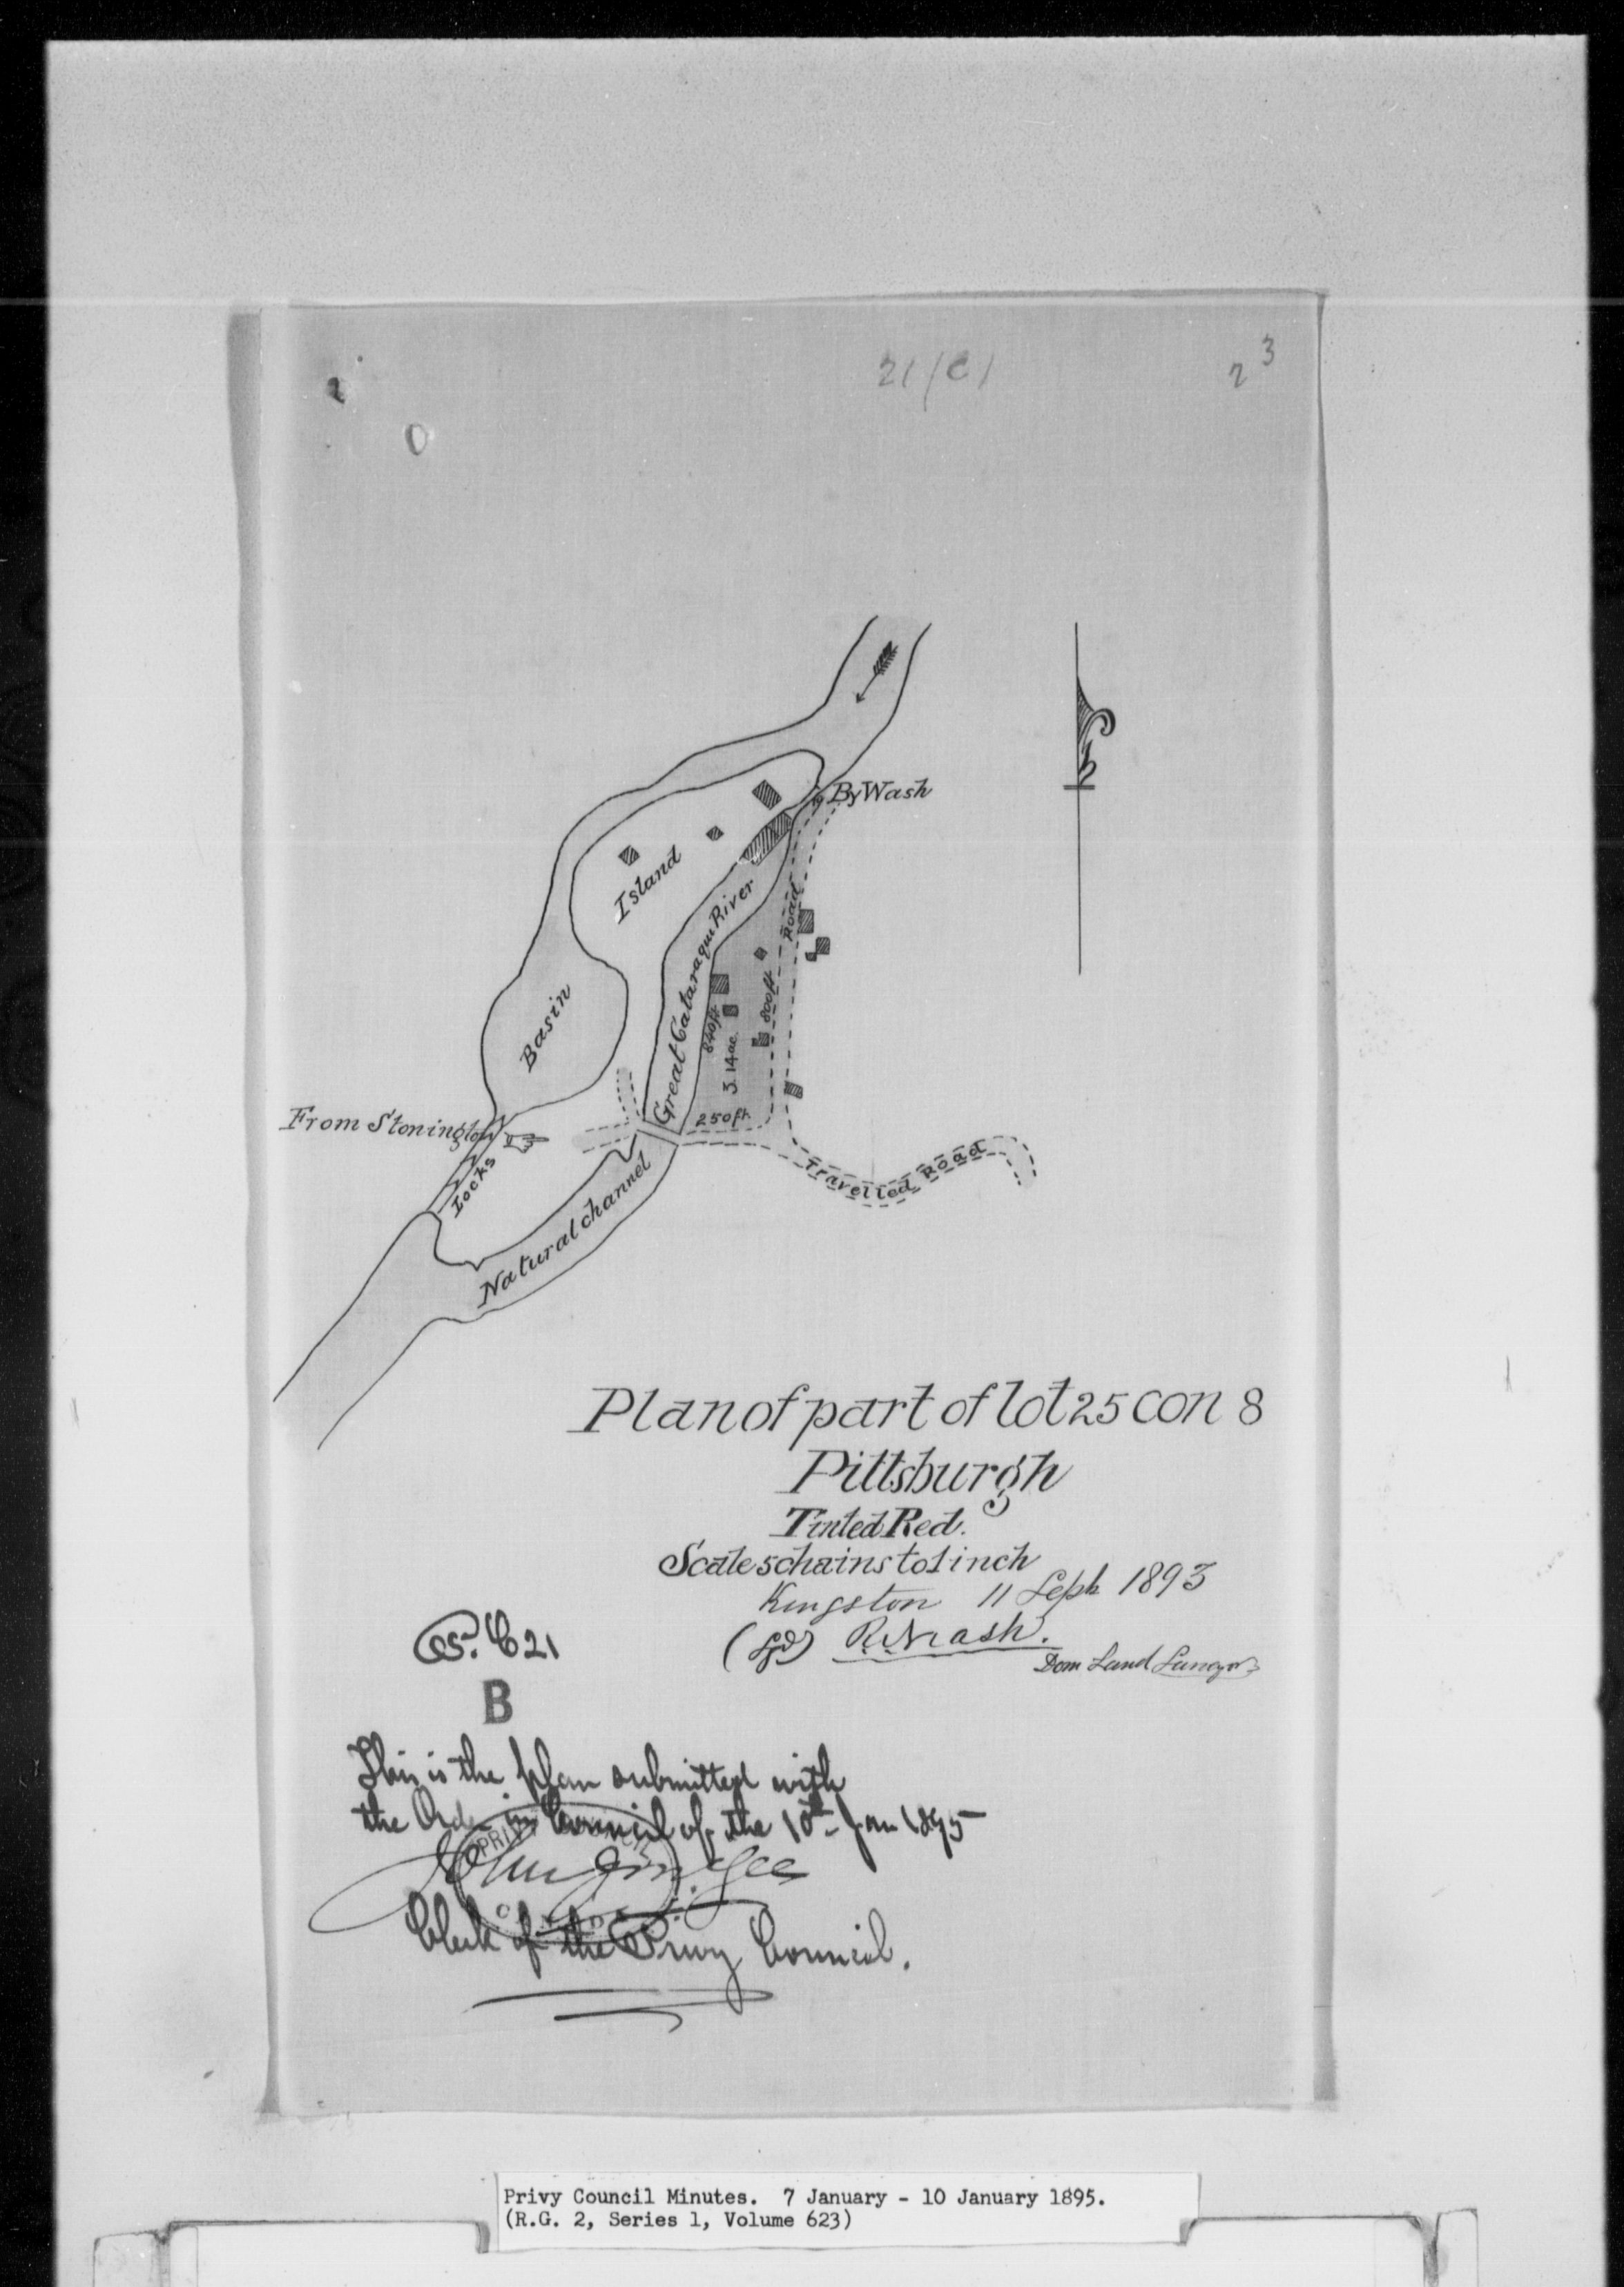 21(C)
23
By Wash
Island
Road
Great Cataraqui River
Basin
800ft
840ft
3.14ac.
250ft.
From Stonington
Locks
Travelled Road
Natural channel
Plan of part of lot 25 con 8
Pittsburgh
Tinted Red.
Scale 5 chains to 1 inch
Kingston 11 Sept 1893
(Sgd)
Dom Land Surveyor
21
B
This is the plan submitted with
the Order in Council of the 10th Jan 1895
PRIVY COUNCIL
CANADA
Clerk of the Privy Council.
Privy Council Minutes. 7 January - 10 January 1895.
(R.G. 2, Series 1, Volume 623)